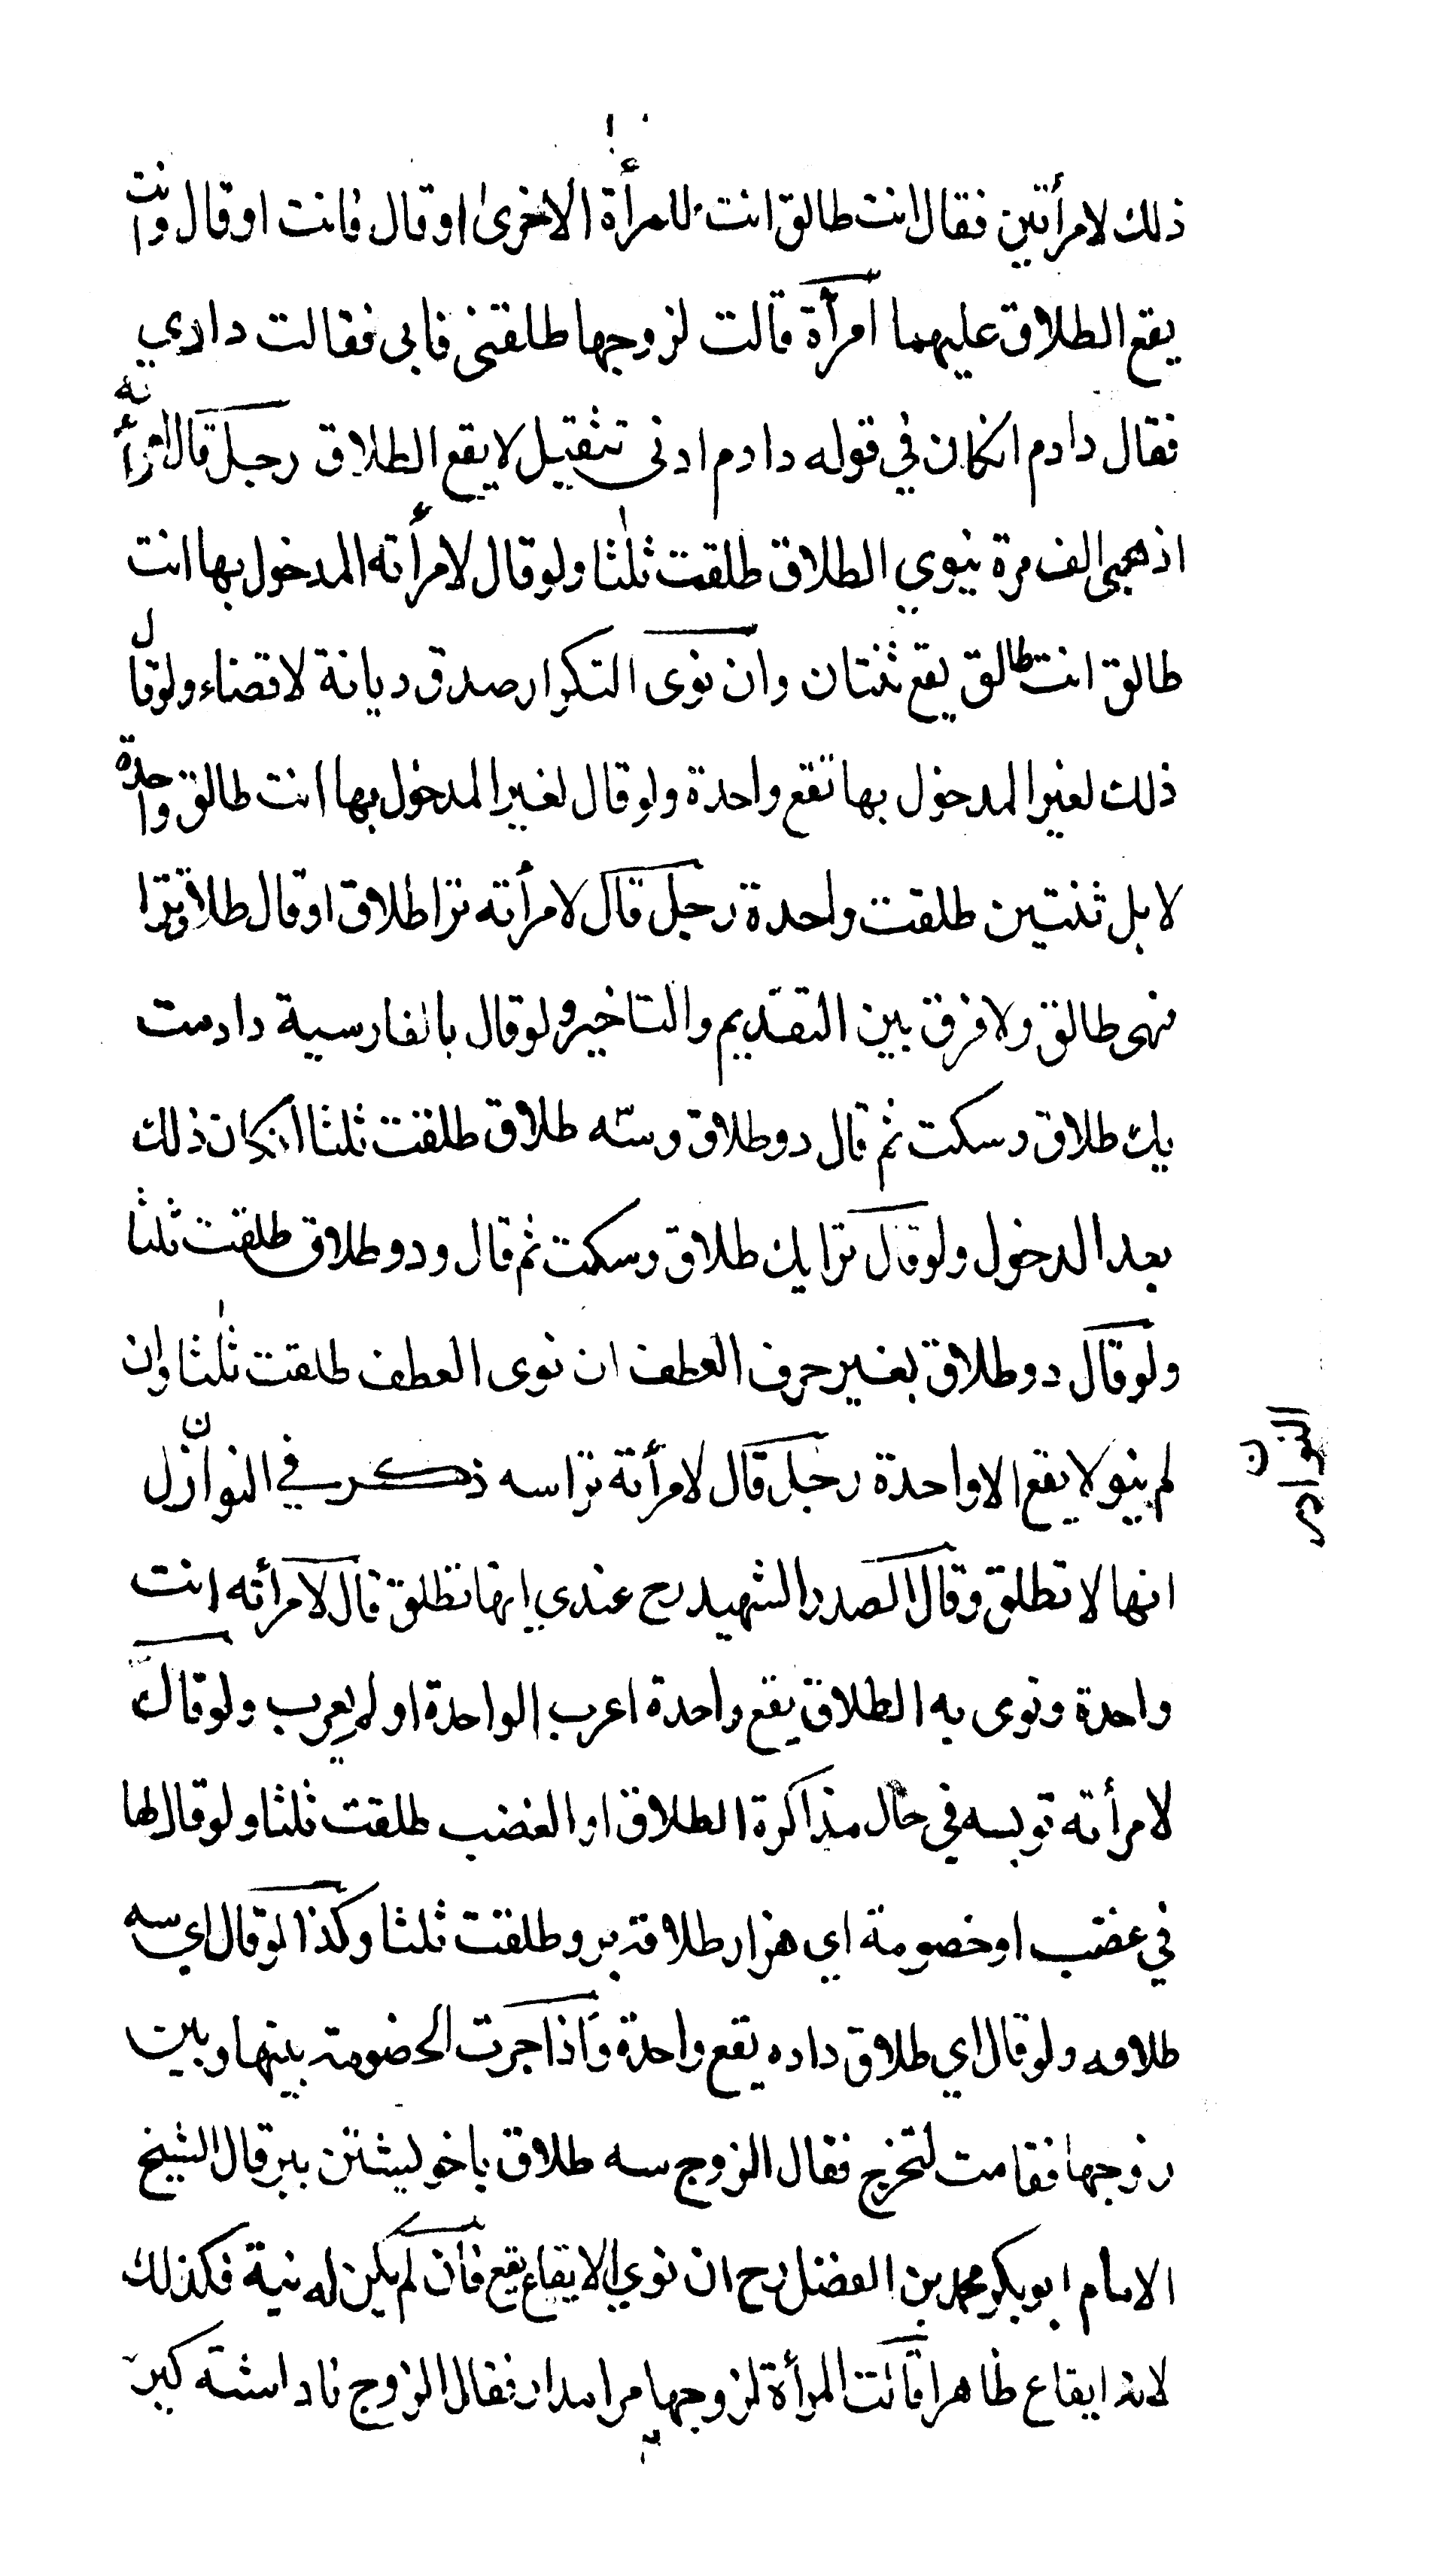 ذلك لامرأتين فقال انت طالق انت للامرأة الاخرى او قال فانت او قال وانت
يقع الطلاق عليهما امرأة قالت لزوجها طلقني فابى فقالت دادي
فقال دادم انكان في قوله دادم ادنى تثقيل لا يقع الطلاق رجل قال لامرأته
اذهبي الف مرة ينوي الطلاق طلقت ثلثا ولو قال لامرأته المدخول بها انت
طالق انت طالق يقع ثنتان وان نوى التكرار صدق ديانة لا قضاء ولو قال
ذلك لغير المدخول بها تقع واحدة ولو قال لغير المدخول بها انت طالق واحدة
لا بل ثنتين طلقت واحدة رجل قال لامرأته ترا طلاق او قال طلاق ترا
فهى طالق ولا فرق بين التقديم والتاخير ولو قال بالفارسية دادمت
يك طلاق وسكت ثم قال دو طلاق وسه طلاق طلقت ثلثا انكان ذلك
بعد الدخول ولو قال ترا يك طلاق وسكت ثم قال ودو طلاق طلقت ثلثا
ولو قال دو طلاق بغير حرف العطف ان نوى العطف طلقت ثلثا وان
لم ينو لا يقع الا واحدة رجل قال لامرأته ترا سه ذكر في النوازل
انها لا تطلق وقال الصدر الشهيد رح عندي انها تطلق قال لامرأته انت
واحدة ونوى به الطلاق يقع واحدة اعرب الواحدة او لم يعرب ولو قال
لامرأته تو بسه في حال مذاكرة الطلاق او الغضب طلقت ثلثا ولو قال لها
في غضب او خصومة اي هزار طلاقه برو طلقت ثلثا وكذا لو قال اي سه
طلاقه ولو قال اي طلاق داده يقع واحدة واذا جرت الخصومة بينها وبين
زوجها فقامت لتخرج فقال الزوج سه طلاق با خويشتن ببر قال الشيخ
الامام ابو بكر محمد بن الفضل رح ان نوي الايقاع يقع فان لم يكن له نية فكذلك
لانه ايقاع ظاهرا قالت المرأة لزوجها مرا مدار فقال الزوج ناداشته كير
النوادر
ن